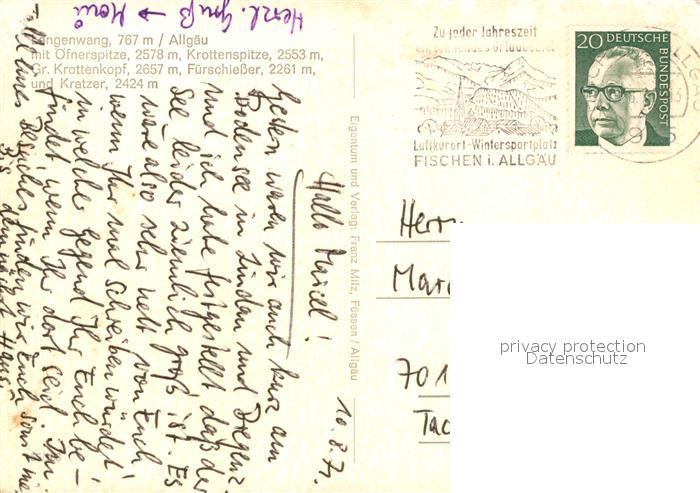 Langenwang, 767 m / Allgäu
mit Öfnerspitze, 2578 m, Krottenspitze, 2553 m,
Gr. Krottenkopf, 2657 m, Fürschießer, 2261 m,
und Kratzer, 2424 m
Herzl. Gruß →
Zu jeder Jahreszeit
ein lohnendes Urlaubsziel
Luftkurort-Wintersportplatz
FISCHEN i. ALLGÄU
20 DEUTSCHE
BUNDESPOST
Eigentum und Verlag: Franz Milz, Füssen / Allgäu
10.8.71
Hallo Marcel!
Gestern waren wir auch kurz am
Bodensee in Lindau und Bregenz
und ich habe festgestellt daß der
See leider ziemlich groß ist. Es
wäre also sehr nett von Euch
wenn Ihr mal schreiben würdet
in welcher Gegend Ihr Euch be-
findet, wenn Ihr dort seid. Im
Falle eines Besuches finden wir Euch sonst nie.
Bis demnächst
Herrn
Marc
701
privacy protection
Datenschutz